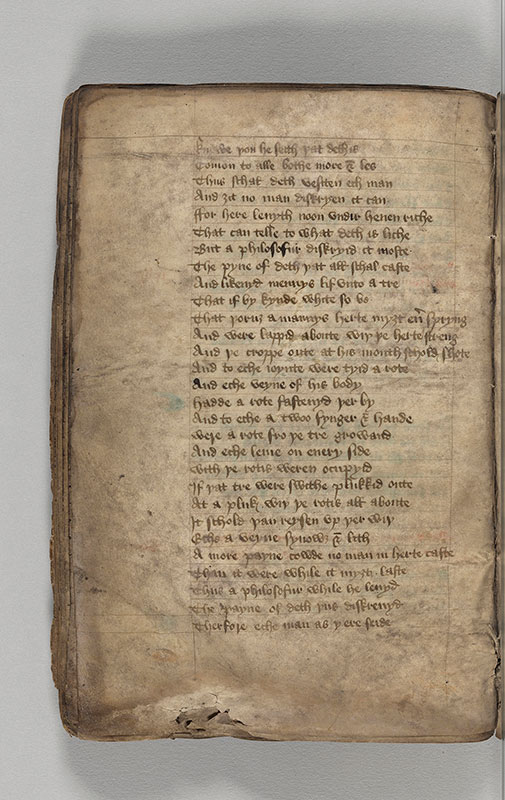 you he seith þat deth is
Comon to alle bothe more & les
Thus schal deth vesiten ech man
And ȝit no man diskryen it can
ffor here leuyth noon vndir heuen riche
That can telle to what deth is liche
But a philosofur diskryid it moste
The pyne of deth þat all schal caste
And likenid mennys lif vnto a tre
That if by kynde white so be
That þoruȝ a mannys herte myȝt spryng
And were lappid aboute wiþ þe herte streng
And þe croppe oute at his mouth schold schete
And to eche ioynte were tyid a rote
And eche veyne of his body
Hadde a rote fastenyd þer by
And to eche a twoo fynger & hande
were a rote fro þe tre growand
And eche leme on euery side
with þe rotis weren ocupyd
If þat tre were swithe plukkid oute
At a pluk wiþ þe rotis all aboute
It schold þan reysen vp þer wiþ
Eche a veyne synowȝ & lith
A more payne cowde no man in herte caste
Than it were while it myȝt laste
Thus a philosofur while he leuyd
The payne of deth þus diskreuyd
Therfore eche man as y ere seide